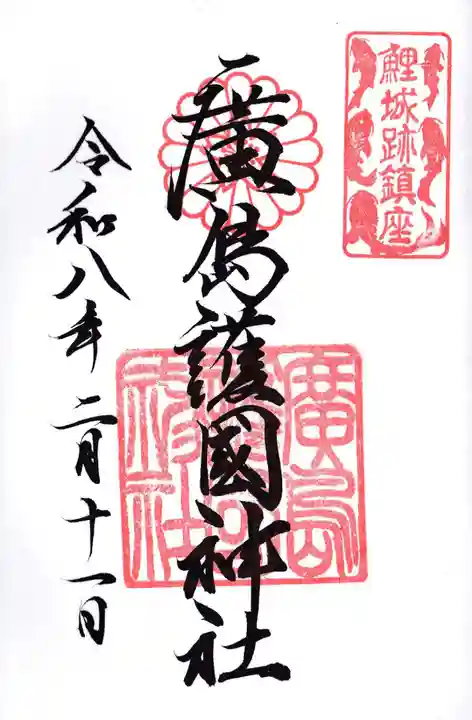 鯉城跡鎮座
廣島護國神社
廣島護國神社
令和八年二月十一日